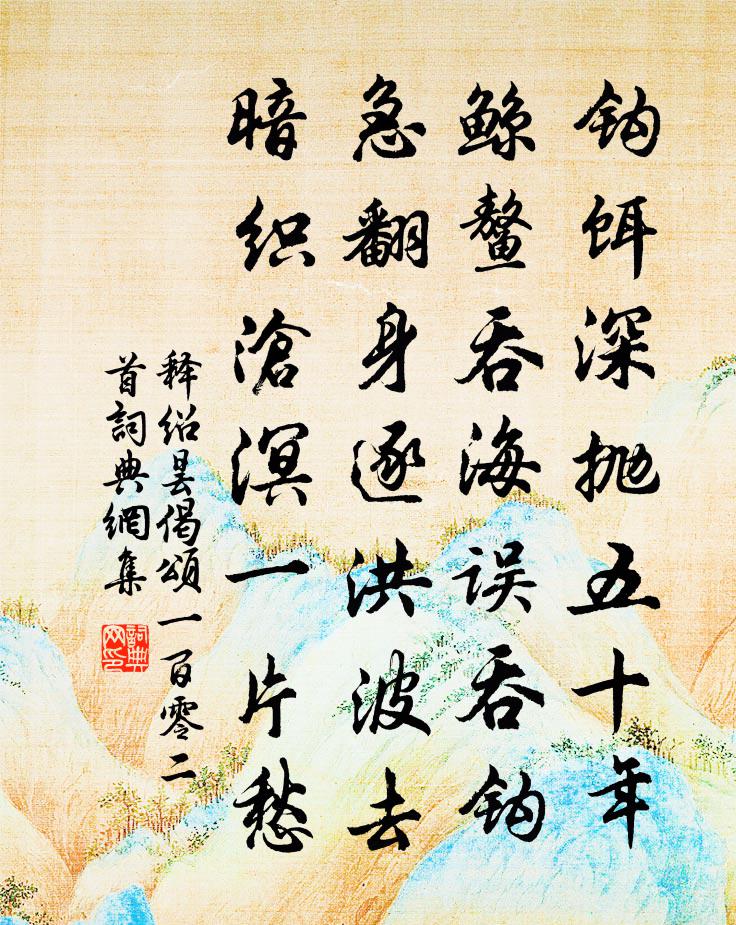 钩饵深抛五十年
鲸鳌吞海误吞钩
急翻身逐洪波去
暗织滄溟一片愁
释绍昙偈頌一百零二
首詞典網集
詞典
网印